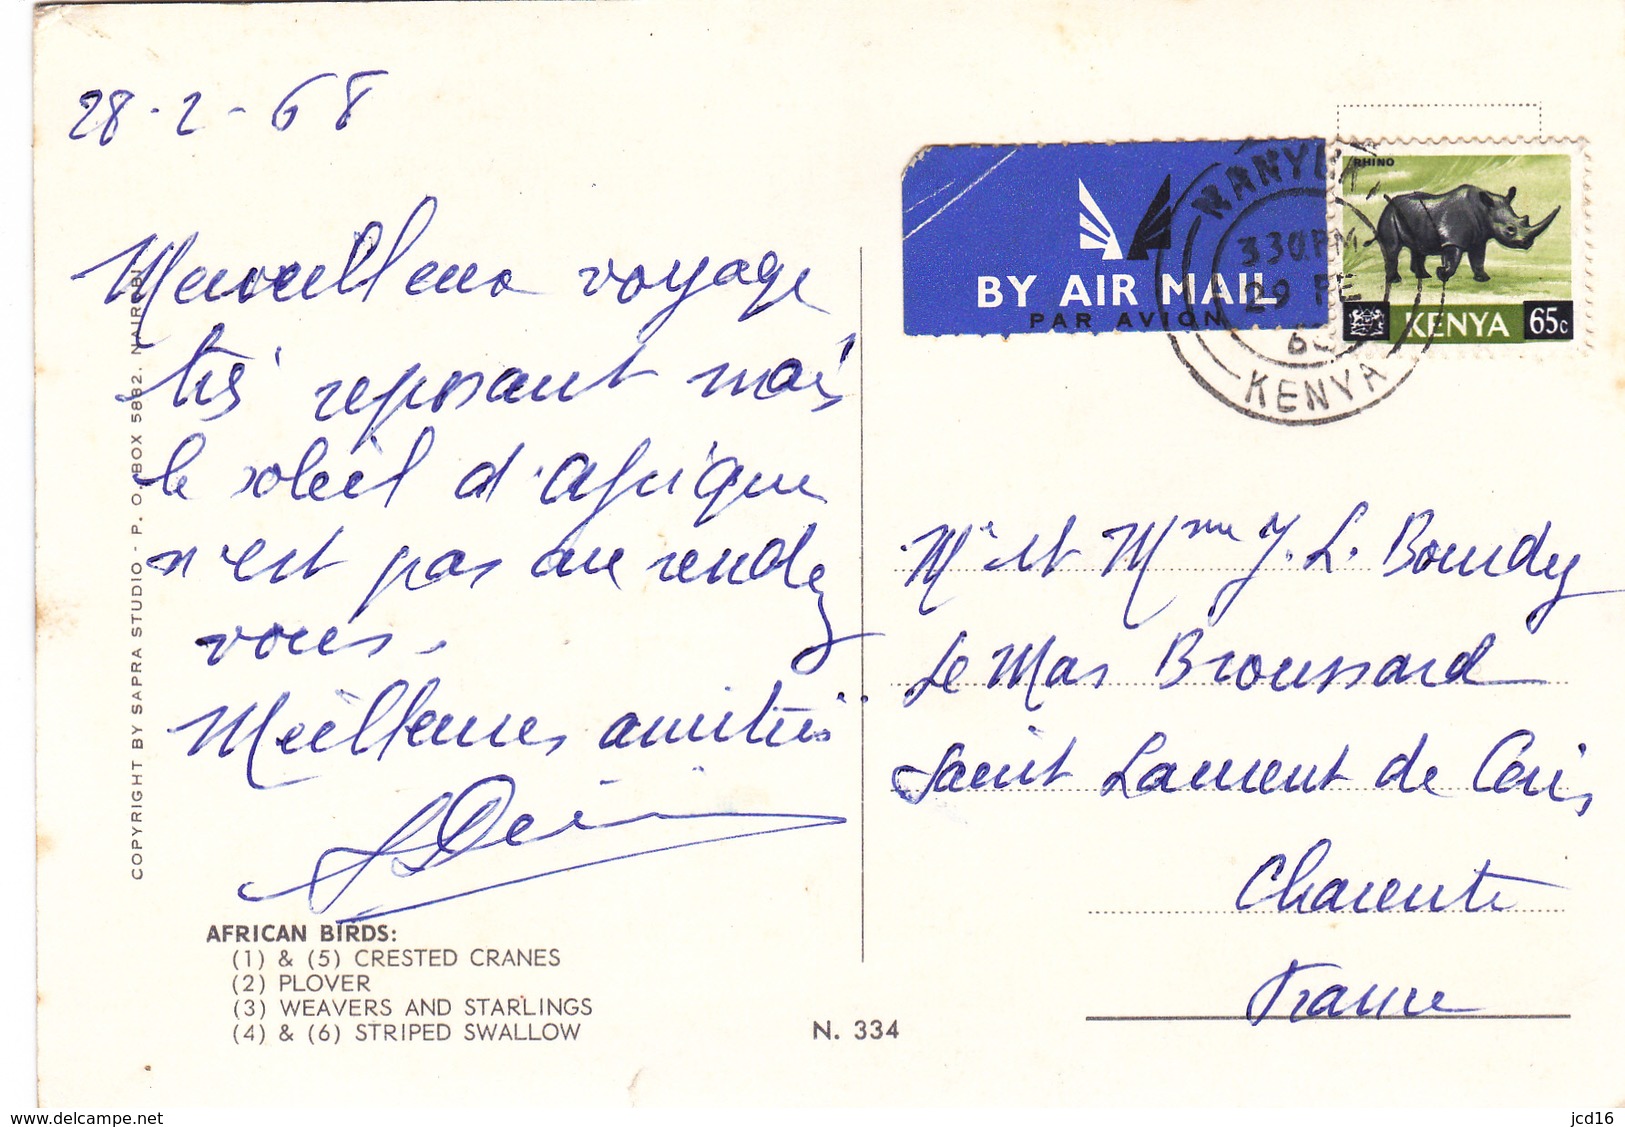 28-2-68
Merveilleux voyage
très reposant mais
le soleil d'Afrique
n'est pas au rendez
vous.
Meilleures amitiés
COPYRIGHT BY SAPRA STUDIO - P. O. BOX 5882. NAIROBI
AFRICAN BIRDS:
(1) & (5) CRESTED CRANES
(2) PLOVER
(3) WEAVERS AND STARLINGS
(4) & (6) STRIPED SWALLOW
N. 334
BY AIR MAIL
PAR AVION
NANYUKI
3 30 PM
29 FE
KENYA
RHINO
KENYA 65c
Mr et Mme J. L. Bourdey
Le Mas Broussard
Saint Laurent de Céris
Charente
France
www.delcampe.net
jcd16